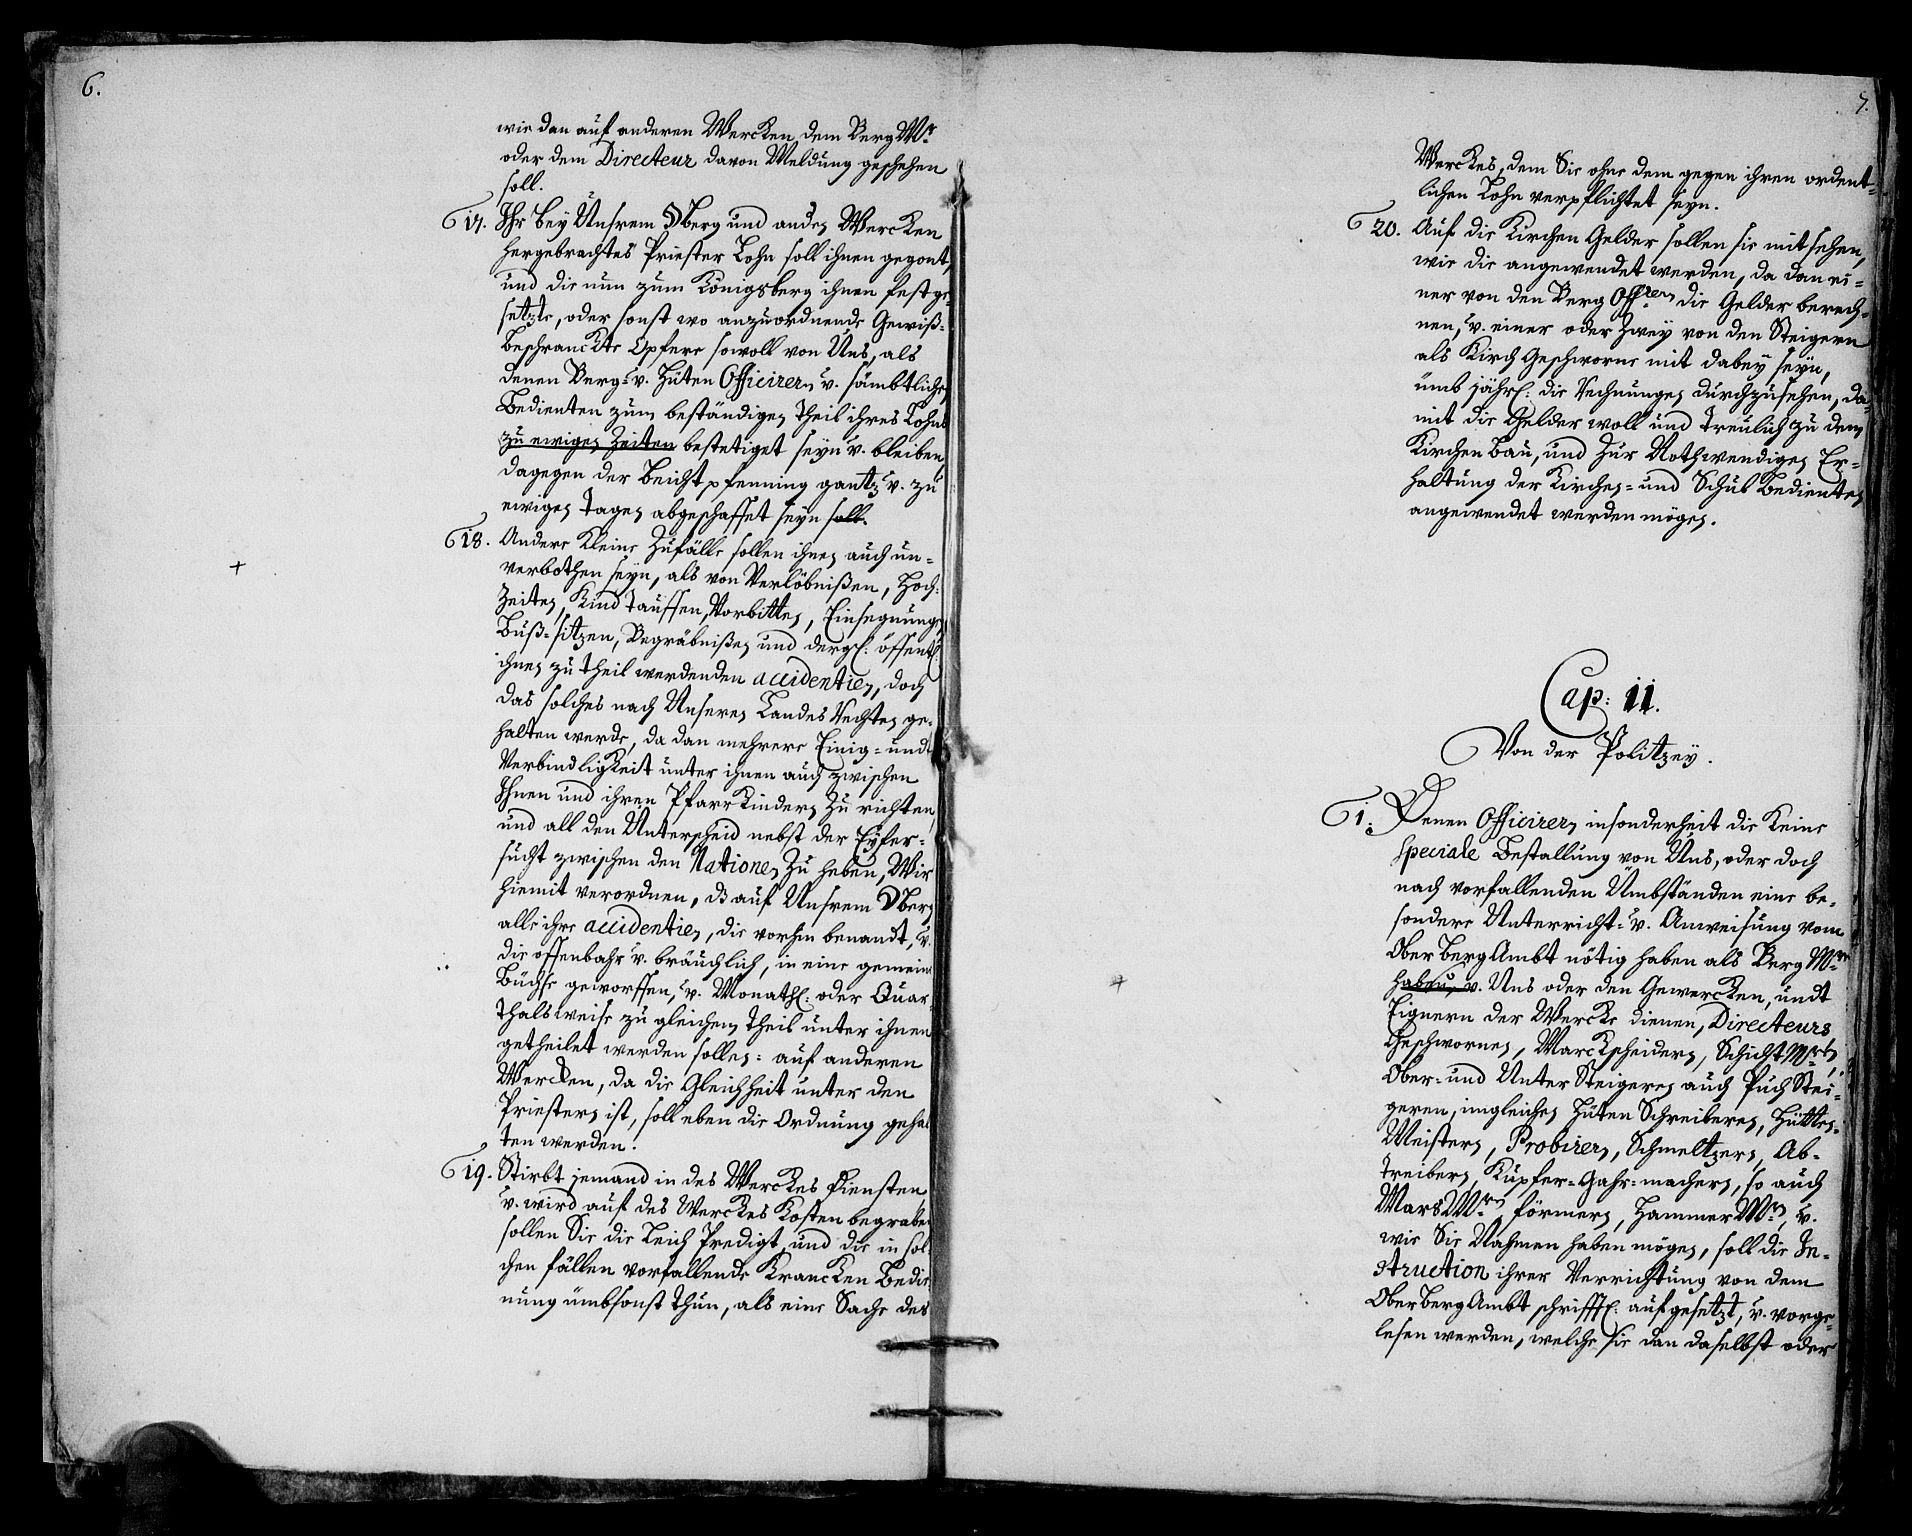 6.
wie dan auf anderen Wercken dem Berg Mr
oder dem Directeur davon Meldung geschehen
soll.
17. Ihr bey Unsrem Sberg und anden Wercken
hergebrachtes Priester Lohn soll ihnen gegönt,
und die nun zum Königsberg ihnen fest ge-
setzte, oder sonst wo anzuordnende Gewiß-
Beschranckte Opfere sowoll von Uns, als
denen Berg- v. Hüten Officiren v. sämbtlichen
Bedienten zum beständigen Theil ihres Lohns
zu ewigen Zeiten bestetiget seyn v. bleiben,
dagegen der Beichtpfenning gantz v. zu
ewigen Tagen abgeschaffet seyn soll.
18. Andere kleine Zufälle sollen ihnen auch un-
verbothen seyn, als von Verlöbnißen, Hoch-
Zeiten, Kind Tauffen, Vorbitten, Einsegnungen
Buß-sitzen, Begräbnißen und dergl: öffentl:
ihnen zu theil werdenden accidentien, doch
das solches nach Unseren Landes Rechten ge-
halten werde, da dan mehrere Einig- und
Verbindligkeit unter ihnen auch zwischen
Ihnen und ihren Pfarrkindern zu richten,
und all den Unterscheid nebst der Eyfer-
sucht zwischen den Nationen zu heben, Wir
hiemit verordnen, daß auf Unsrem Sberg
alle ihre accidentien, die vorhin benandt, v.
die offenbahr v. bräuchlich, in eine gemeine
Büchse geworffen, v. Monathl: oder Quar-
thalsweise zu gleichem Theil unter ihnen
getheilet werden sollen: auf anderen
Wercken, da die Gleichheit unter den
Priestern ist, soll eben die Ordnung gehal
ten werden.
19. Stirbt jemand in des Werckes Diensten
v. wird auf des Werckes Kosten begraben
sollen Sie die Leich Predigt, und die in sol-
chen fällen vorfallende Krancken Bedie
nung ümbsonst thun, als eine Sache des
7.
Werckes, dem Sie ohne dem gegen ihren ordent-
lichen Lohn verpflichtet seyn.
20. Auf die Kirchen Gelder sollen sie mit sehen,
wie die angewendet werden, da dan ei-
ner von den Berg Officiren die Gelder berech-
nen, v. einer oder Zwey von den Steigern
als Kirch Geschworne mit dabey seyn,
ümb jährl: die Rechnungen durchzusehen, da-
mit die Gelder woll und treulich zu dem
Kirchen Bau, und zur Nothwendigen Er-
haltung der Kirchen- und Schul Bedienten
angewendet werden mögen.
Cap: II.
Von der Politzey.
1. Denen Officiren insonderheit die keine
speciale Bestallung von Uns, oder doch
nach vorfallenden Umbständen eine be-
sondere Unterricht- v. Anweisung vom
Ober Berg Ambt nötig haben als Berg Mr
haben, v. Uns oder den Gewercken, undt
Eignern der Wercke dienen, Directeurs,
Geschwornen, Marckscheidern, Schicht Mrn,
Ober- und Unter Steigeren auch Puch Stei-
geren, imgleichen Hüten Schreiberen, Hütten-
Meistern, Probiren, Schmeltzern, Ab-
treibern, Kupfer-Gahr-machern, so auch
Mars Mrn, förmern, Hammer Mrn, v.
wie Sie Nahmen haben mögen, soll die In-
struction ihrer Verrichtung von dem
Ober Berg Ambt schrifftl: aufgesetzt, v. vorge-
lesen werden, welche sie dan daselbst oder